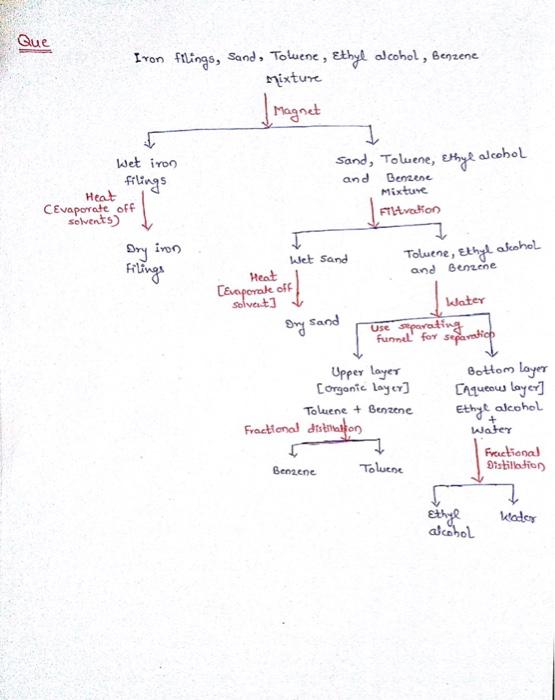 Que
Iron filings, Sand, Toluene, Ethyl alcohol, Benzene
Mixture
Magnet
Wet iron
filings
Sand, Toluene, Ethyl alcohol
and Benzene
Mixture
Heat
(Evaporate off
solvents)
Filtration
Dry iron
Filings
Wet sand
Toluene, Ethyl alcohol
and Benzene
Heat
[Evaporate off
solvent]
Water
Dry sand
Use separating
funnel for separation
Upper layer
[Organic layer]
Toluene + Benzene
Bottom layer
[Aqueous layer]
Ethyl alcohol
+
Water
Fractional distillation
Fractional
Distillation
Benzene
Toluene
Ethyl
alcohol
Water